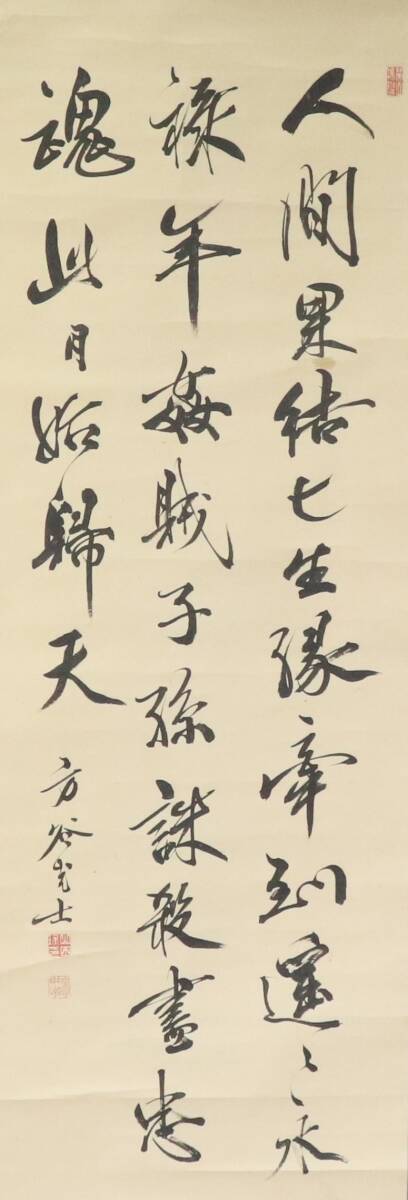 人間果結七生縁牽到遥々永
禄年姦賊子孫誅殺盡忠
魂此月始歸天
方谷士